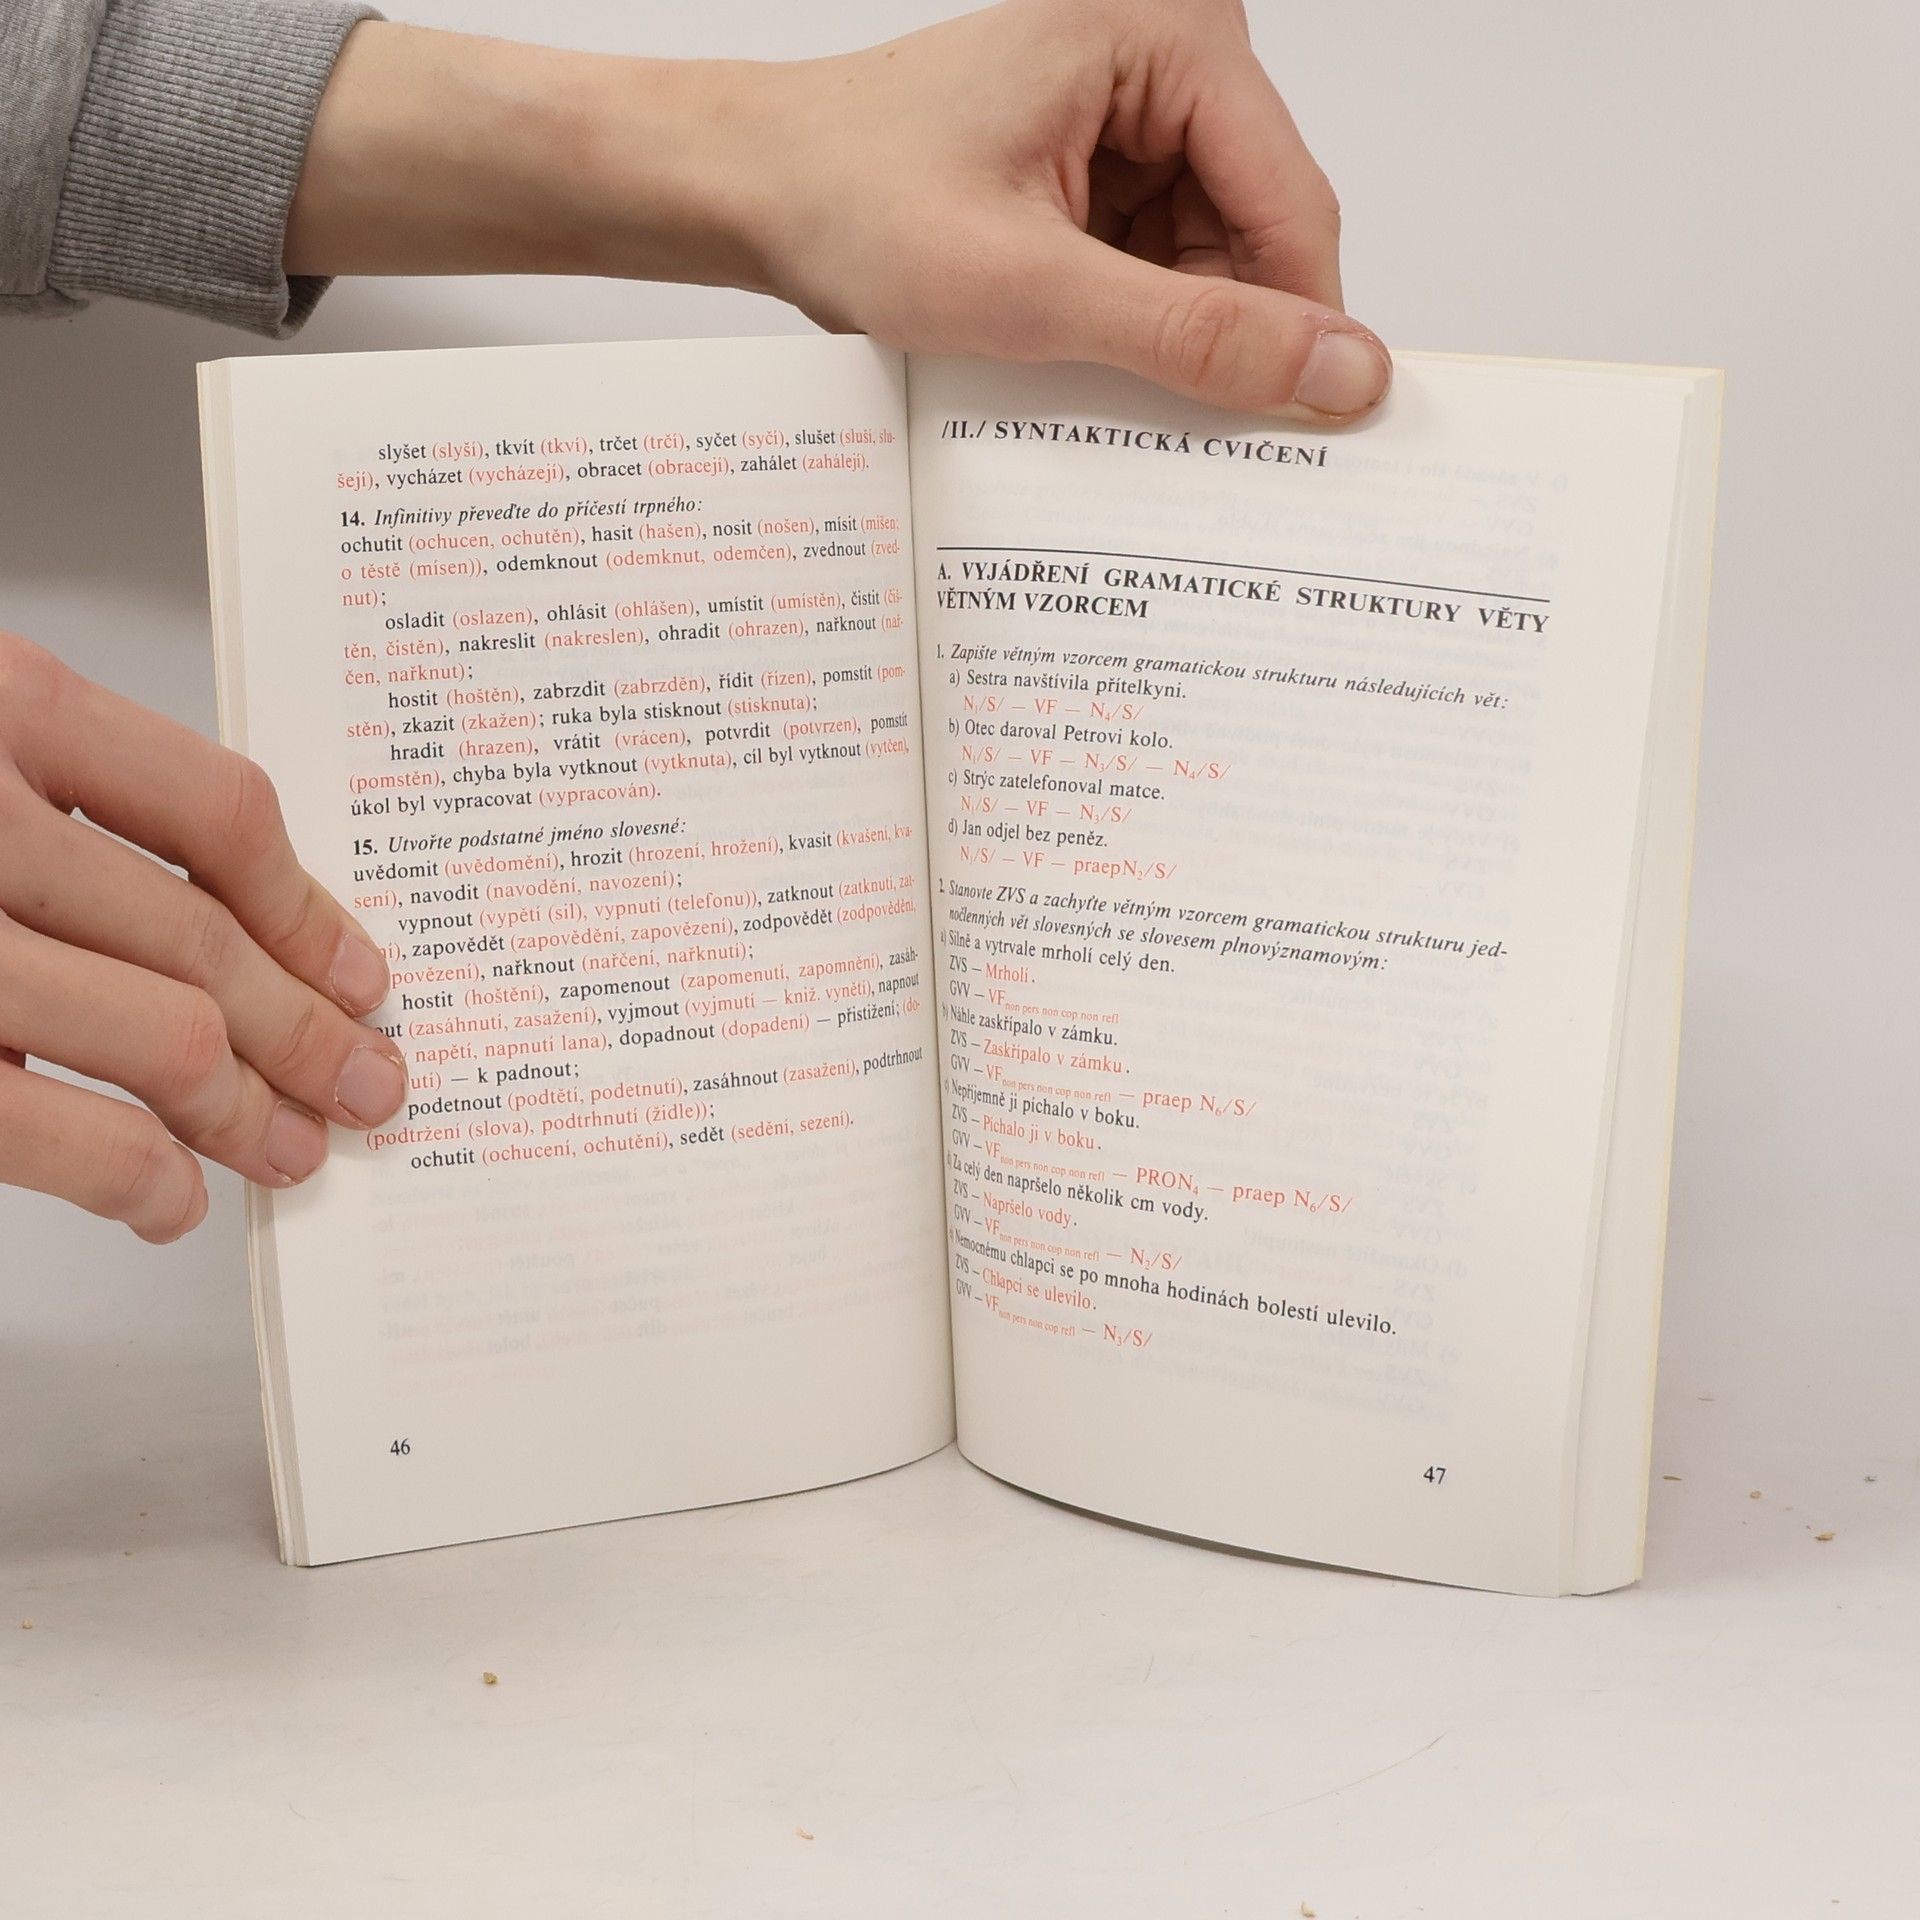 slyšet (slyší), tkvít (tkví), trčet (trčí), syčet (syčí), slušet (sluší, slu-
šejí), vycházet (vycházejí), obracet (obracejí), zahálet (zahálejí).
14. Infinitivy převeďte do příčestí trpného:
ochutit (ochucen, ochutěn), hasit (hašen), nosit (nošen), mísit (míšen;
o těstě (mísen)), odemknout (odemknut, odemčen), zvednout (zved-
nut);
osladit (oslazen), ohlásit (ohlášen), umístit (umístěn), čistit (čiš-
těn, čistěn), nakreslit (nakreslen), ohradit (ohrazen), nařknout (nař-
čen, nařknut);
hostit (hoštěn), zabrzdit (zabrzděn), řídit (řízen), pomstít (pom-
stěn), zkazit (zkažen); ruka byla stisknout (stisknuta);
hradit (hrazen), vrátit (vrácen), potvrdit (potvrzen), pomstít
(pomstěn), chyba byla vytknout (vytknuta), cíl byl vytknout (vytčen),
úkol byl vypracovat (vypracován).
15. Utvořte podstatné jméno slovesné:
uvědomit (uvědomění), hrozit (hrození, hrožení), kvasit (kvašení, kva-
sení), navodit (navodění, navození);
vypnout (vypětí (sil), vypnutí (telefonu)), zatknout (zatknutí, zat-
ní), zapovědět (zapovědění, zapovězení), zodpovědět (zodpovědění,
povězení), nařknout (nařčení, nařknutí);
hostit (hoštění), zapomenout (zapomenutí, zapomnění), zasáh-
out (zasáhnutí, zasažení), vyjmout (vyjmutí — kniž. vynětí), napnout
napětí, napnutí lana), dopadnout (dopadení) — přistižení; (do-
utí) — k padnout;
podetnout (podtětí, podetnutí), zasáhnout (zasažení), podtrhnout
(podtržení (slova), podtrhnutí (židle));
ochutit (ochucení, ochutění), sedět (sedění, sezení).
46
/II./ SYNTAKTICKÁ CVIČENÍ
A. VYJÁDŘENÍ GRAMATICKÉ STRUKTURY VĚTY
VĚTNÝM VZORCEM
1. Zapište větným vzorcem gramatickou strukturu následujících vět:
a) Sestra navštívila přítelkyni.
N₁/S/ — VF — N₄/S/
b) Otec daroval Petrovi kolo.
N₁/S/ — VF — N₃/S/ — N₄/S/
c) Strýc zatelefonoval matce.
N₁/S/ — VF — N₃/S/
d) Jan odjel bez peněz.
N₁/S/ — VF — praepN₂/S/
2. Stanovte ZVS a zachyťte větným vzorcem gramatickou strukturu jed-
nočlenných vět slovesných se slovesem plnovýznamovým:
a) Silně a vytrvale mrholí celý den.
ZVS – Mrholí.
GVV – VF non pers non cop non refl
b) Náhle zaskřípalo v zámku.
ZVS – Zaskřípalo v zámku.
GVV – VF non pers non cop non refl — praep N₆/S/
c) Nepříjemně ji píchalo v boku.
ZVS – Píchalo ji v boku.
GVV – VF non pers non cop non refl — PRON₄ — praep N₆/S/
d) Za celý den napršelo několik cm vody.
ZVS – Napršelo vody.
GVV – VF non pers non cop non refl — N₂/S/
e) Nemocnému chlapci se po mnoha hodinách bolestí ulevilo.
ZVS – Chlapci se ulevilo.
GVV – VF non pers non cop refl — N₃/S/
47